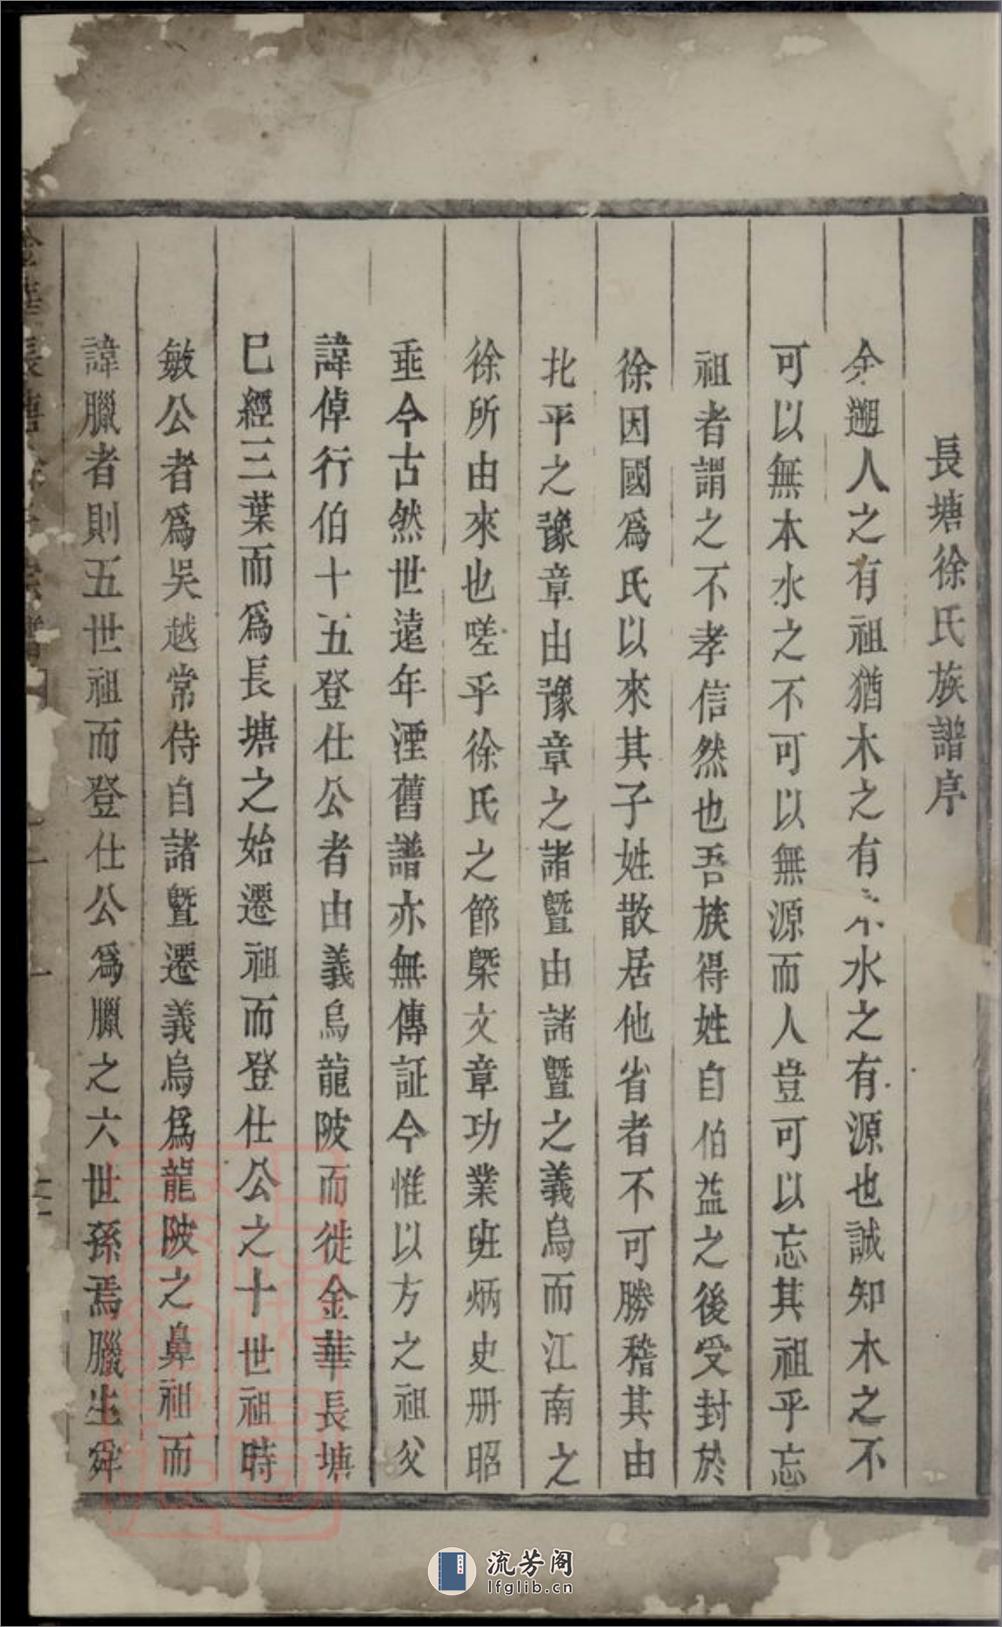 長塘徐氏族譜序
余遡人之有祖猶木之有本水之有源也誠知木之不
可以無本水之不可以無源而人豈可以忘其祖乎忘
祖者謂之不孝信然也吾族得姓自伯益之後受封於
徐因國爲氏以來其子姓散居他省者不可勝稽其由
北平之豫章由豫章之諸暨由諸暨之義烏而江南之
徐所由來也嗟乎徐氏之節槩文章功業班炳史册昭
垂今古然世遠年湮舊譜亦無傳証今惟以方之祖父
諱倬行伯十五登仕公者由義烏龍陂而徙金華長塘
巳經三葉而爲長塘之始遷祖而登仕公之十世祖時
敏公者爲吴越常侍自諸暨遷義烏爲龍陂之鼻祖而
諱臘者則五世祖而登仕公爲臘之六世孫焉臘生舜
金華長塘徐氏宗譜
流芳阁
lfglib.cn